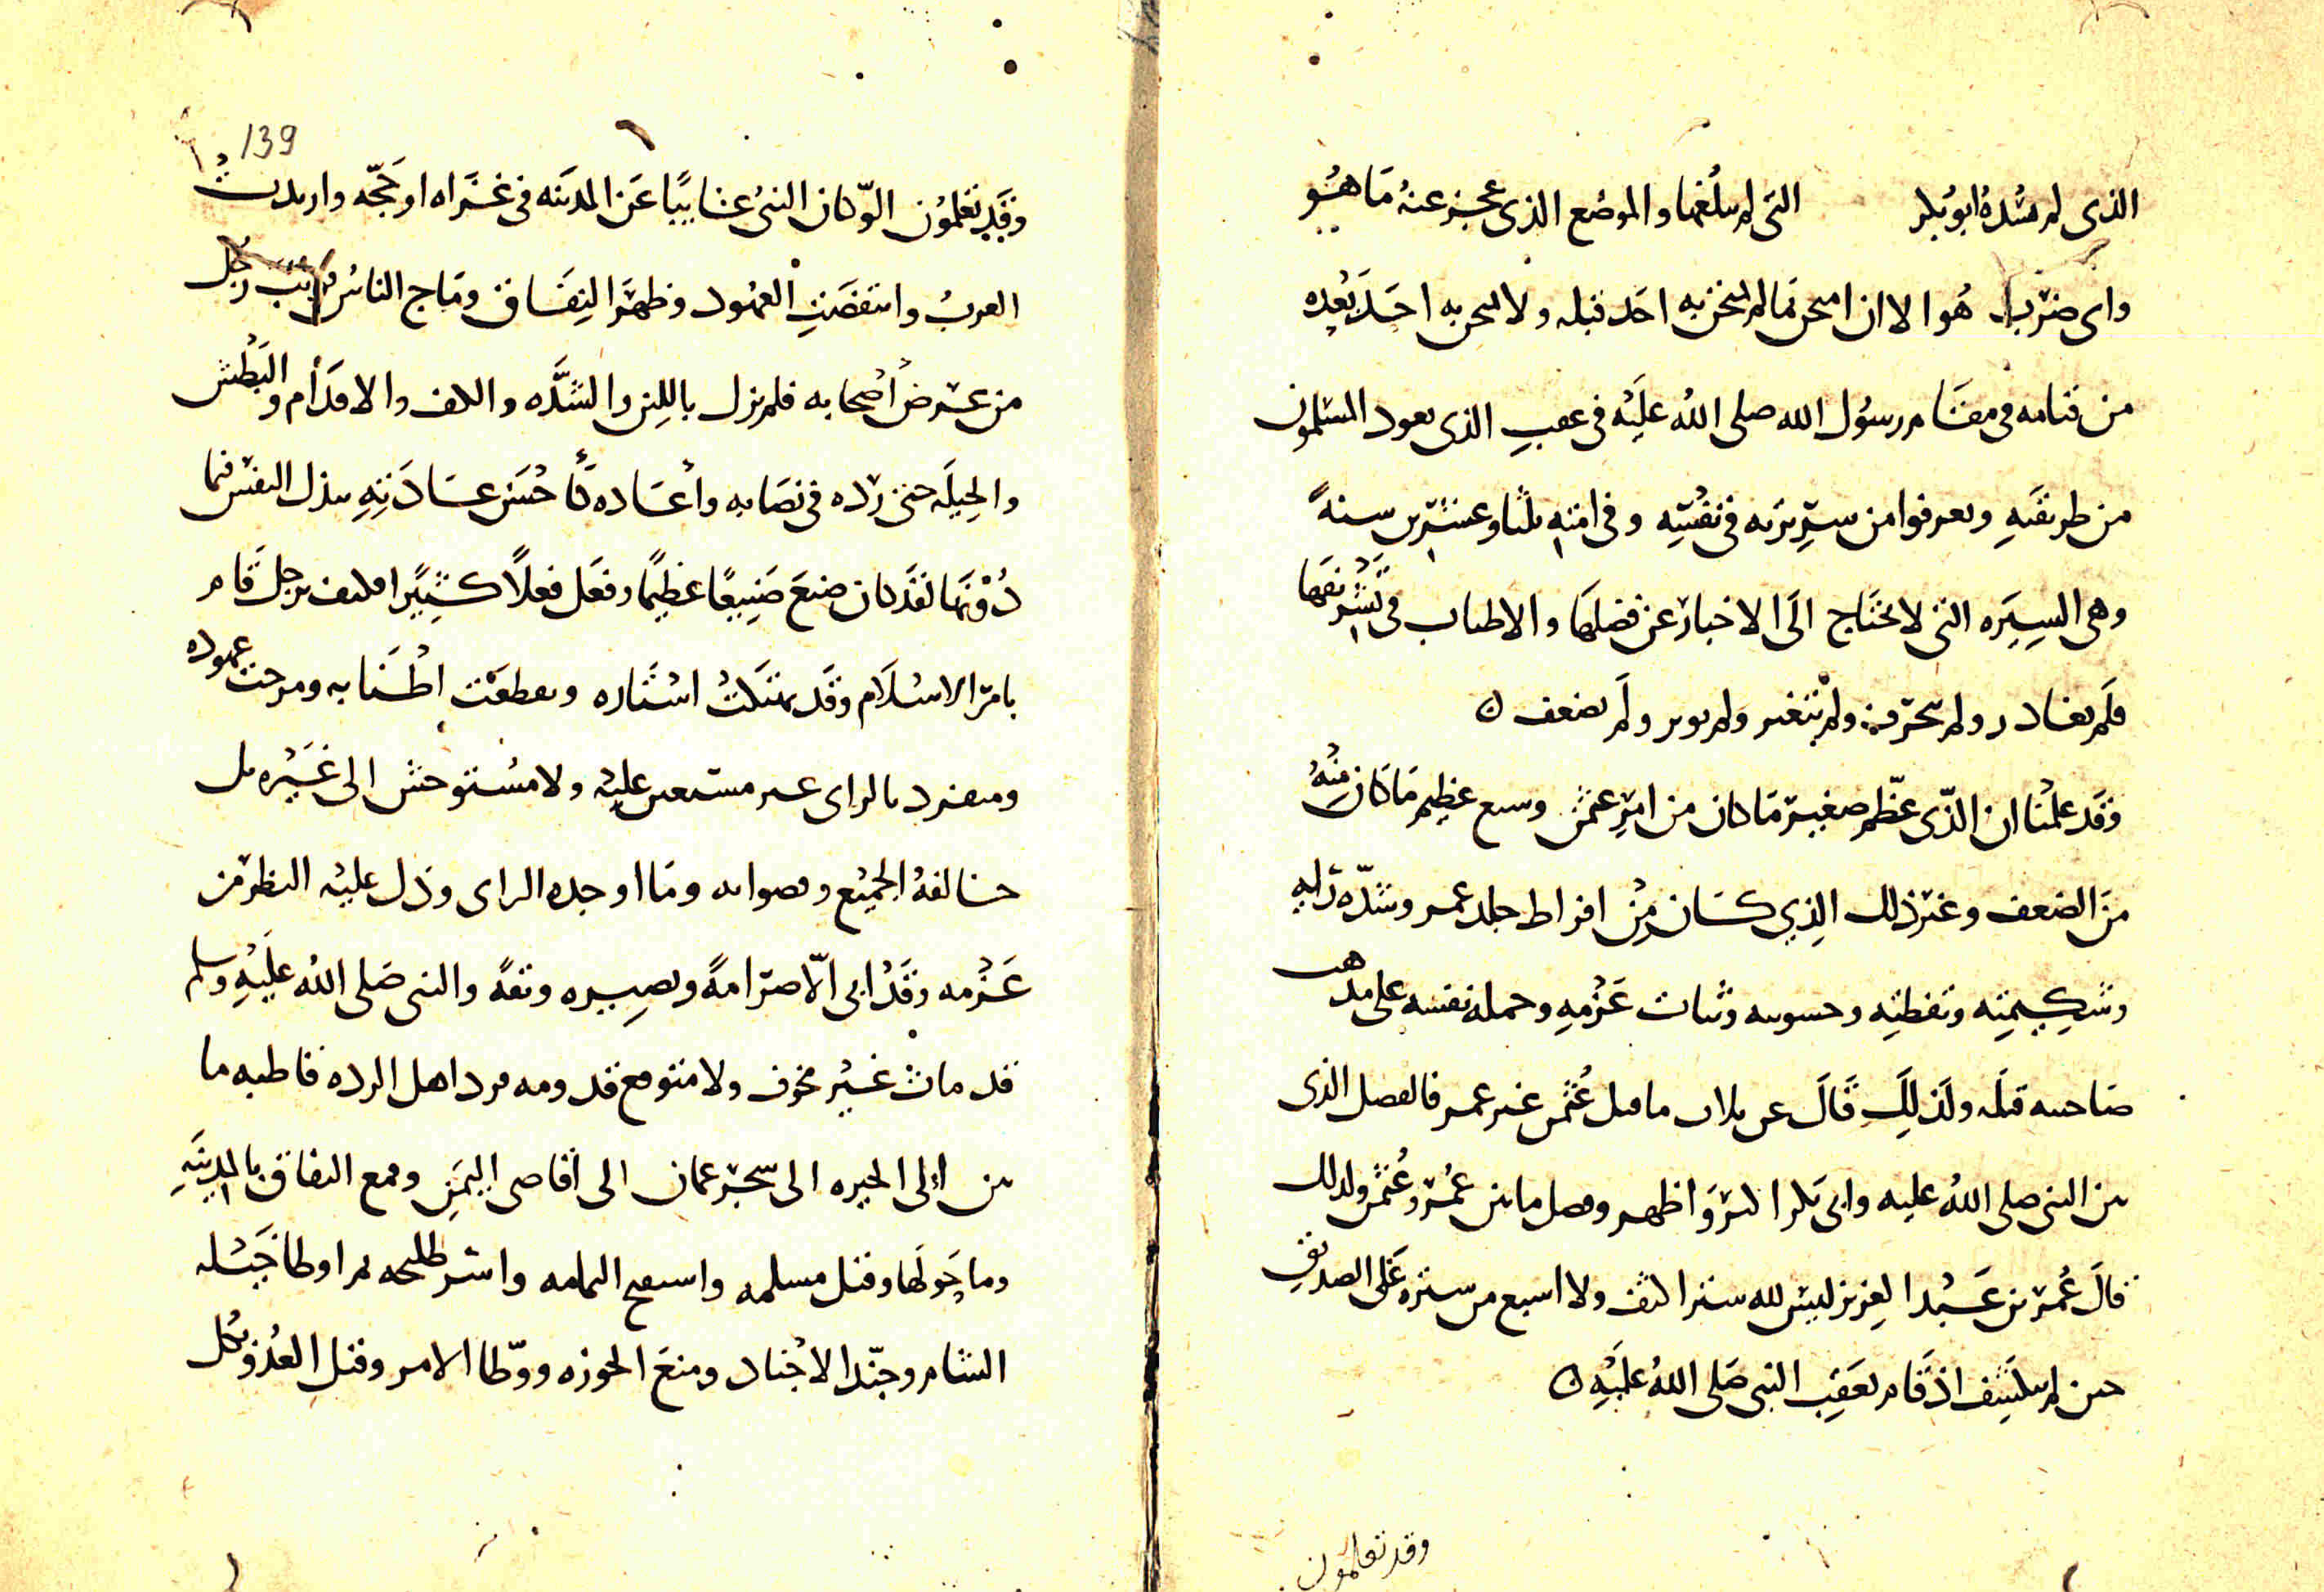 الذى لم يشده ابو بكر التى لم يبلغها والموضع الذى عجز عنه ما هو
واى ضرب هو الا ان امتحن بما لم يمتحن به احد قبله ولا يمتحن به احد بعده
من قيامه فى مقام رسول الله صلى الله عليه فى عقب الذى تعود المسلمون
من طريقته وتعرفوا من سيرته فى نفسه وفى امته ثلثا وعشرين سنة
وهى السيره التى لا تحتاج الى الاخبار عن فضلها والاطناب فى تشريفها
فلم يغادر ولم يتحرف ولم يتغير ولم ولم يضعف
وقد علمنا ان الذى عظم صغير ما كان من امر عثمن عظيم ما كان منه
من الضعف وغير ذلك الذى كان من افراط جلد عمر وشدة رايه
وشكيمته وتفطنه وخشونته وثبات عزمه وحمله نفسه على مذهب
صاحبه قبله ولذلك قال ما قتل عثمن غير عمر فالفصل الذى
بين النبى صلى الله عليه وابى بكر اكثر واظهر وفصل ما بين عمر وعثمن ولذلك
قال عمر بن عبد العزيز ليس لله ستر اكثف ولا اسبع من ستره على الصديق
حين لم ينكشف اذ قام بعقب النبى صلى الله عليه
وقد تعلمون
139
وقد تعلمون انه كان النبى غايبا عن المدينه فى غزاه او حجه وارتدت
العرب وانتقضت العهود وظهر النفاق وماج الناس رجل
من عرض اصحابه فلم يزل باللين والشده والاقدام والبطش
والحيله حتى رده فى نصابه واعاده كاحسن عادته ببذل النفس فما
دونها لقد كان صنع صنيعا عظيما وفعل فعلا كثيرا فكيف برجل قام
بامر الاسلام وقد تهتكت استاره وتقطعت اطنابه ومرجت عهوده
ومنفرد بالراى غير مستعين عليه ولا مستوحش الى غيره بل
خالفه الجميع وما اوجده الراى ودل عليه النظر من
عزمه وقد ابى الا صرامة وبصيره وثقة والنبى صلى الله عليه وسلم
قد مات غير مخوف ولا متوقع قدومه فرد اهل الرده قاطبه ما
بين الى الحيره الى شحر عمان الى اقاصى اليمن وقمع النفاق بالمدينه
وما حولها وقتل مسلمه واستفتح اليمامه واسر طليحه ثم اوطا خيله
الشام وجند الاجناد ومنع الحوزه ووطا الامر وقتل العدو بكل